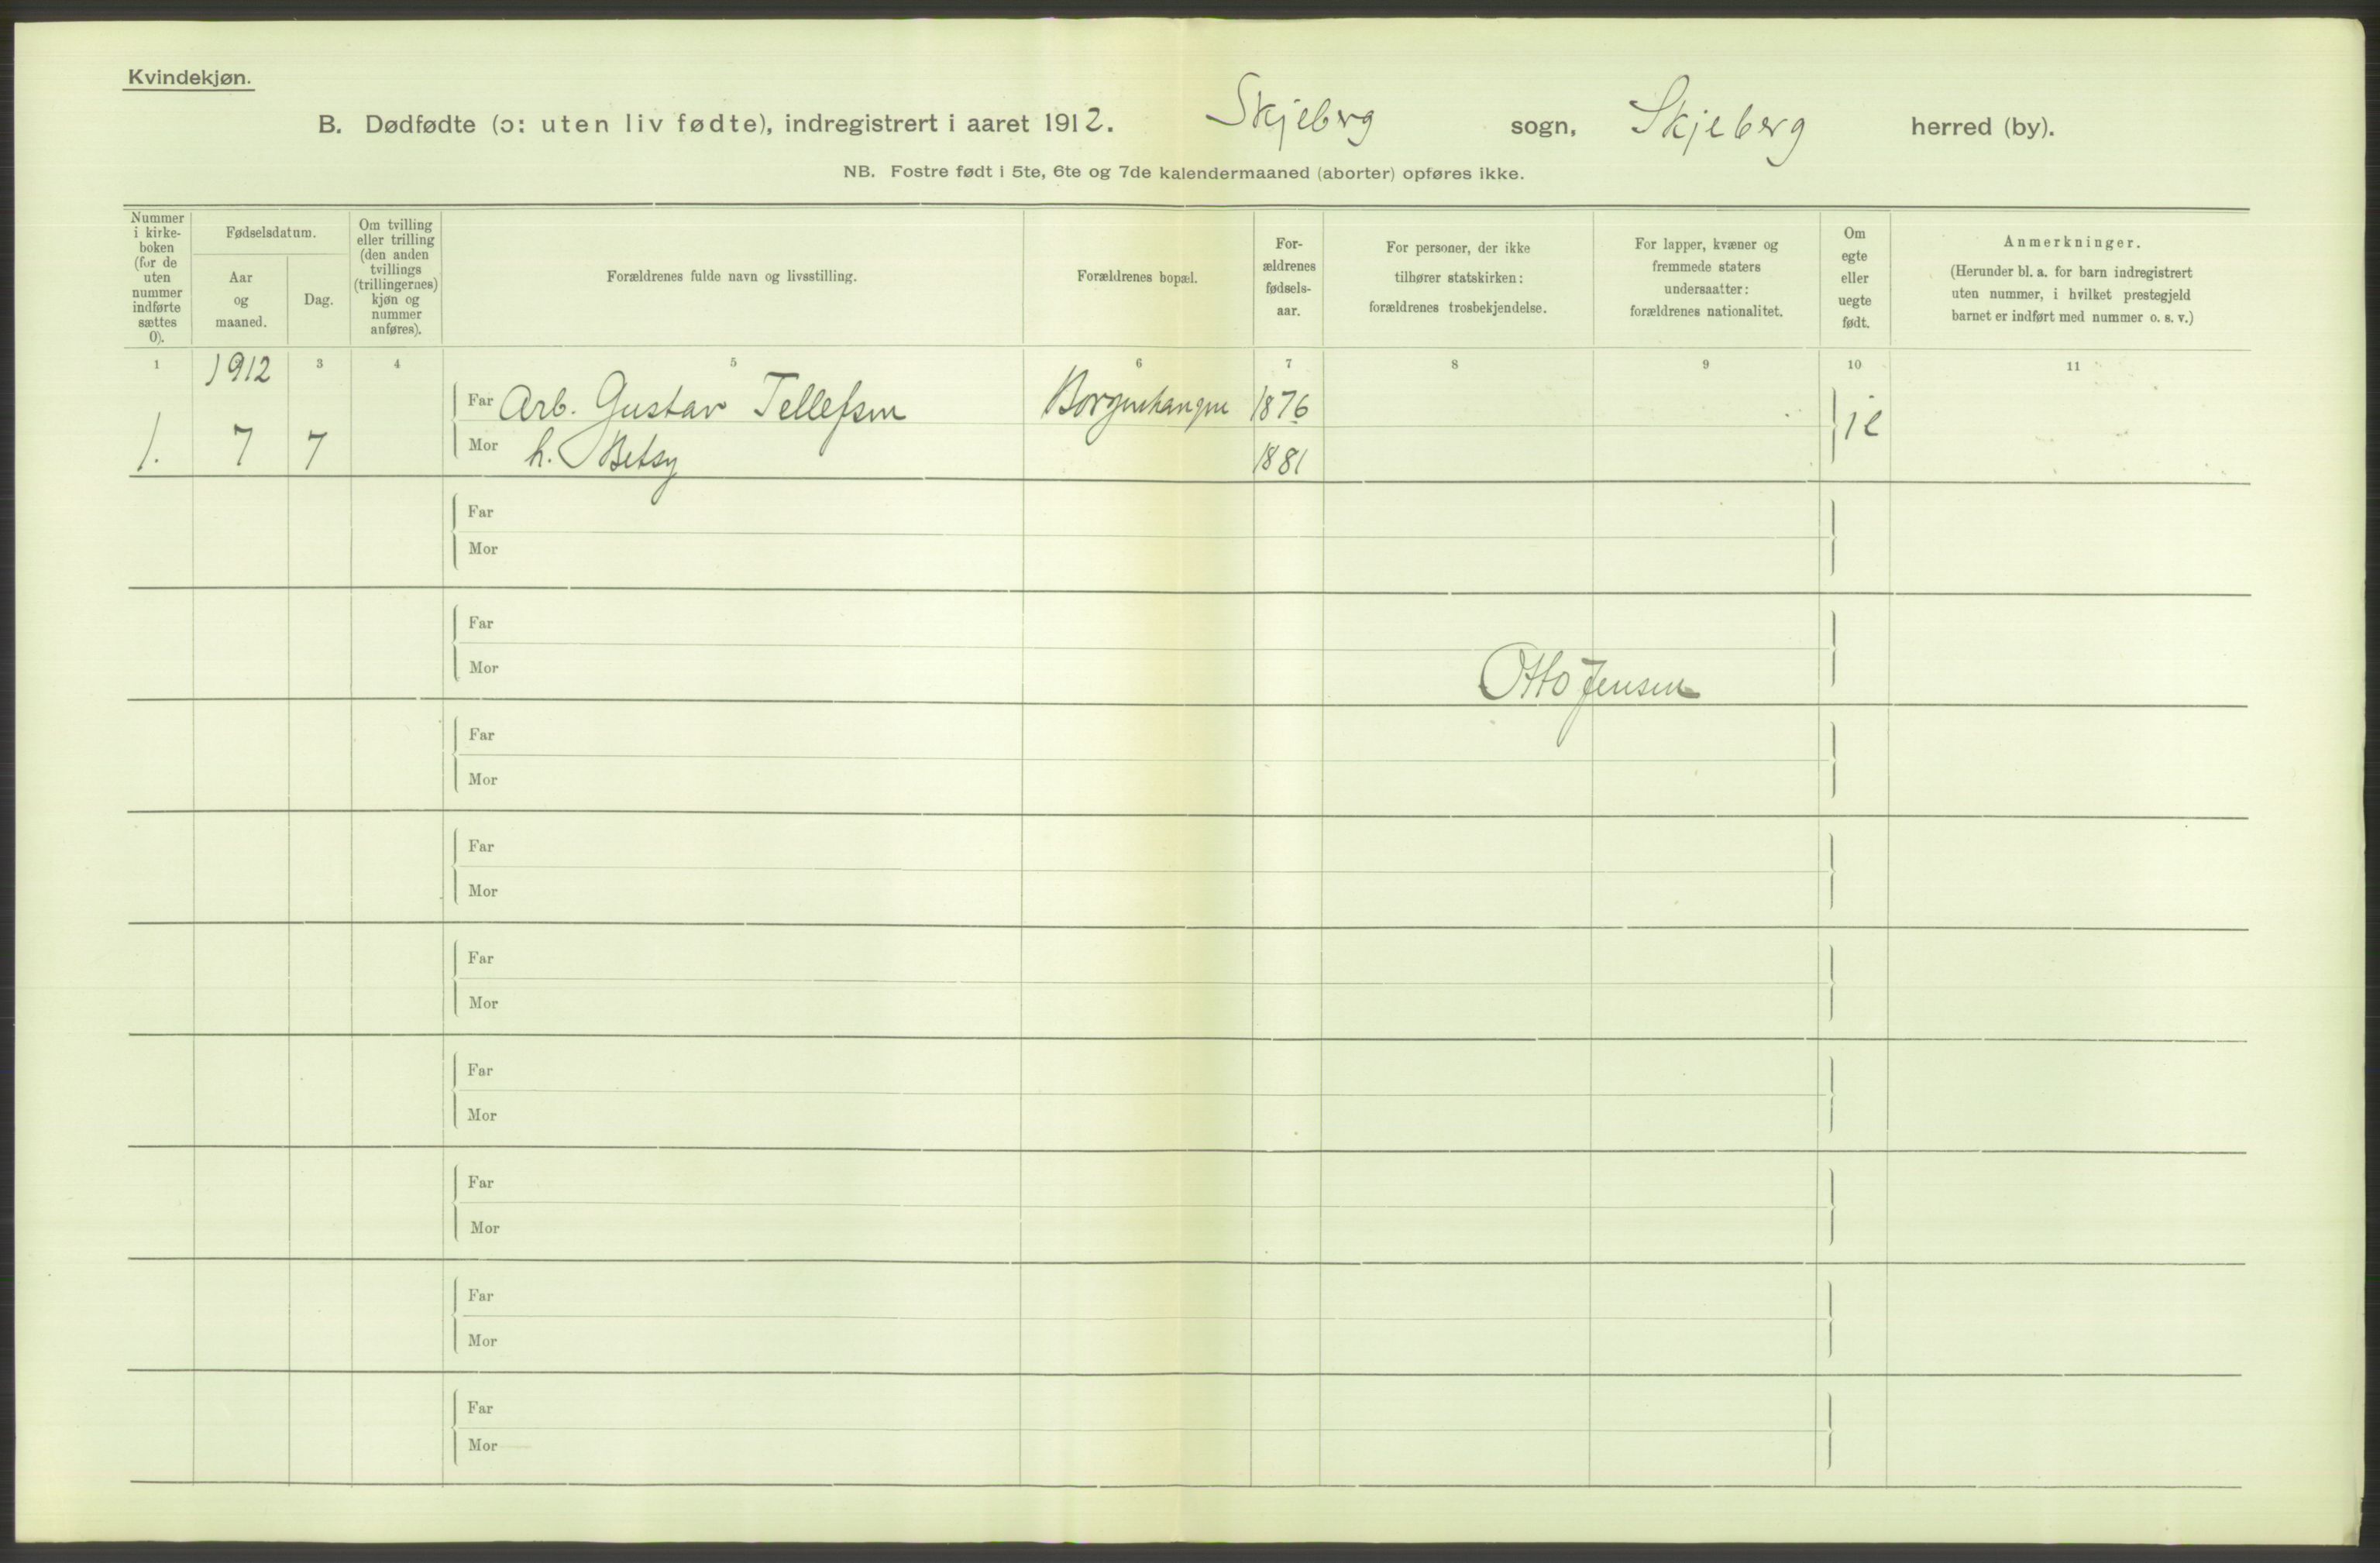 Kvindekjøn.
B. Dødfødte (ɔ: uten liv fødte), indregistrert i aaret 1912. Skjeberg sogn, Skjeberg herred (by).
NB. Fostre født i 5te, 6te og 7de kalendermaaned (aborter) opføres ikke.
Nummer
i kirke-
boken
(for de
uten
nummer
indførte
sættes
0).
Fødselsdatum.
Aar
og
maaned.
Dag.
Om tvilling
eller trilling
(den anden
tvillings
(trillingernes)
kjøn og
nummer
anføres).
Forældrenes fulde navn og livsstilling.
Forældrenes bopæl.
For-
ældrenes
fødsels-
aar.
For personer, der ikke
tilhører statskirken:
forældrenes trosbekjendelse.
For lapper, kvæner og
fremmede staters
undersaatter:
forældrenes nationalitet.
Om
egte
eller
uegte
født.
Anmerkninger.
(Herunder bl. a. for barn indregistrert
uten nummer, i hvilket prestegjeld
barnet er indført med nummer o. s. v.)
1 1912 3 4 5 6 7 8 9 10 11
Far Arb. Gustav Tellefsen Borgenhaugen 1876
1. 7 7 Mor h. Betsy 1881
Far
Mor
Far
Mor
Otto Jensen
Far
Mor
Far
Mor
Far
Mor
Far
Mor
Far
Mor
Far
Mor
Far
Mor